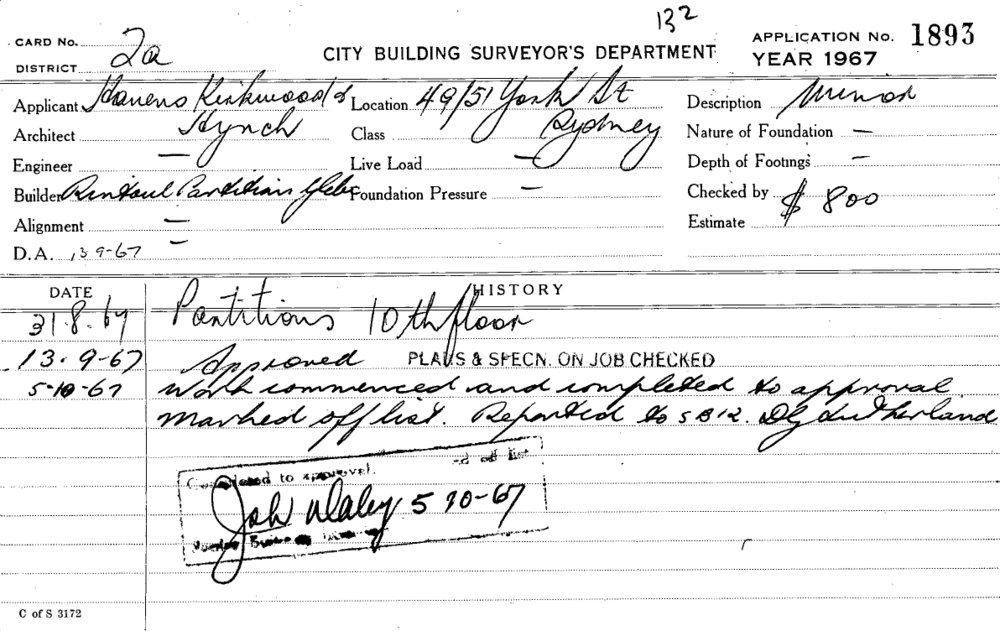 132
CARD No.
DISTRICT 2a
CITY BUILDING SURVEYOR'S DEPARTMENT
APPLICATION No. 1893
YEAR 1967
Applicant Kirkwood &
Location 49/51 York St
Sydney
Description Minor
Architect
Class
Nature of Foundation —
Engineer —
Live Load —
Depth of Footings —
Builder Rintoul Partition Glebe
Foundation Pressure —
Checked by
Alignment —
Estimate $ 800
D.A. 13 9-67 —
DATE HISTORY
31.8.67 Partitions 10th floor
13.9-67 Approved PLANS & SPECN. ON JOB CHECKED
5-10-67 Work commenced and completed to approval
Marked off list. Reported to SB12. DG Sutherland
Completed to approval. -ed off list
Joh Daley 5 10-67
C of S 3172